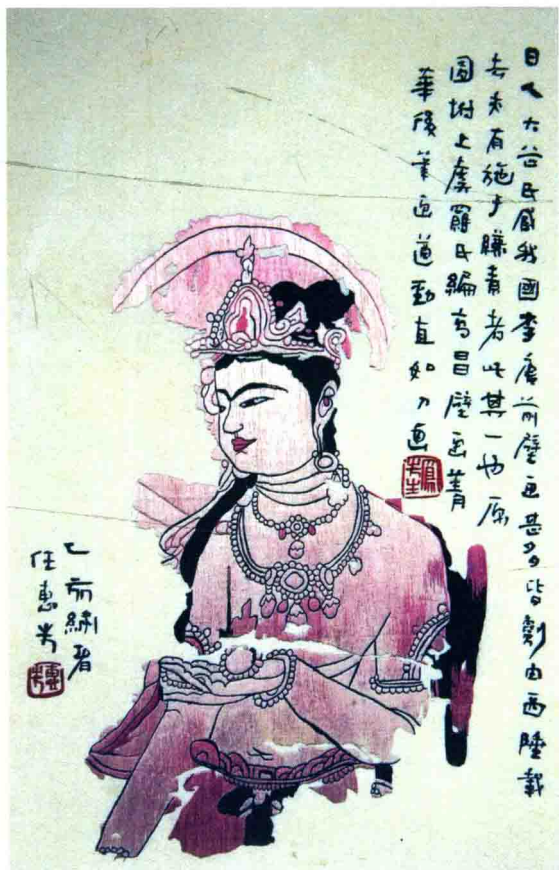 日人大谷氏藏我國李唐前壁画甚多皆割由西陲載
去未有施于縑青者此其一也原
圖坿上虞羅氏編高昌壁画菁
華後筆画遒勁直如刀画
繡者
任惠芳